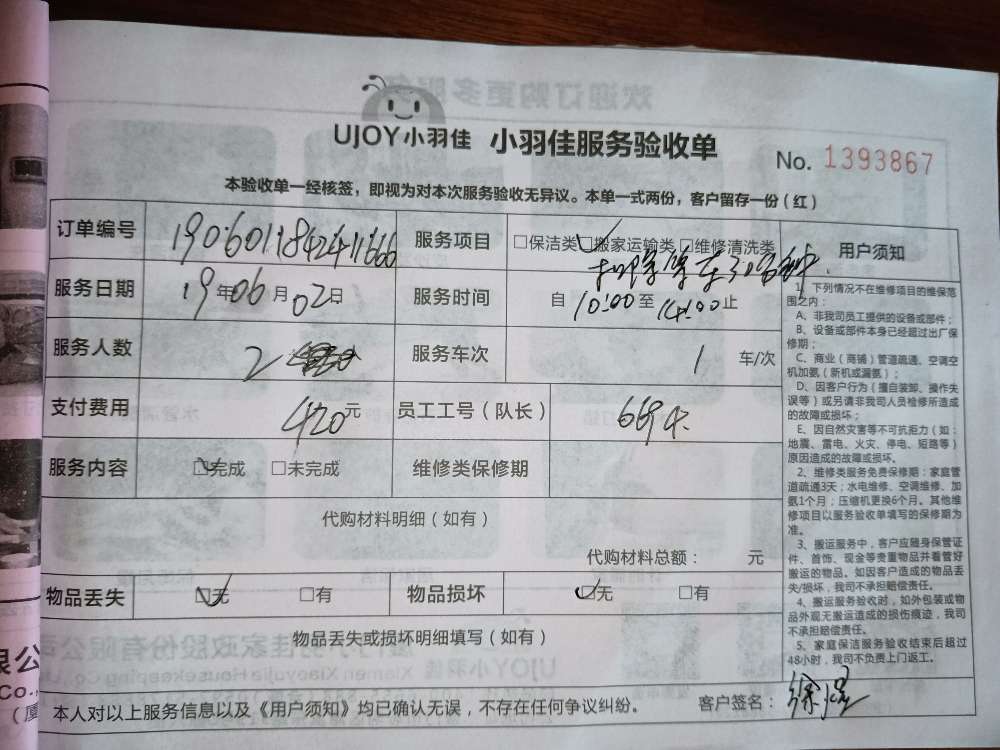 UJOY小羽佳 小羽佳服务验收单
No. 1393867
本验收单一经核签，即视为对本次服务验收无异议。本单一式两份，客户留存一份（红）
订单编号 190601184241666 服务项目 □保洁类 □搬家运输类 □维修清洗类
服务日期 19年06月02日 服务时间 自10:00至14:00止
服务人数 2 服务车次 1 车/次
支付费用 420元 员工工号（队长）
服务内容 □完成 □未完成 维修类保修期
代购材料明细（如有）
代购材料总额： 元
物品丢失 □无 □有 物品损坏 □无 □有
物品丢失或损坏明细填写（如有）
本人对以上服务信息以及《用户须知》均已确认无误，不存在任何争议纠纷。 客户签名：
用户须知
1、下列情况不在维修项目的维保范
围之内：
A、非我司员工提供的设备或部件；
B、设备或部件本身已经超过出厂保
修期；
C、商业（商铺）管道疏通、空调空
机加氨（新机或漏氨）；
D、因客户行为（擅自装卸、操作失
误等）或另请非我司人员检修所造成
的故障或损坏；
E、因自然灾害等不可抗拒力（如：
地震、雷电、火灾、停电、短路等）
原因造成的故障或损坏。
2、维修类服务免费保修期：家庭管
道疏通3天；水电维修、空调维修、加
氨1个月；压缩机更换6个月。其他维
修项目以服务验收单填写的保修期为
准。
3、搬运服务中，客户应随身保管证
件、首饰、现金等贵重物品并看管好
搬运的物品。如因客户造成的物品丢
失/损坏，我司不承担赔偿责任。
4、搬运服务验收时，如外包装或物
品外观无搬运造成的损伤痕迹，我司
不承担赔偿责任。
5、家庭保洁服务验收结束后超过
48小时，我司不负责上门返工。
限公
Co.,
（厦